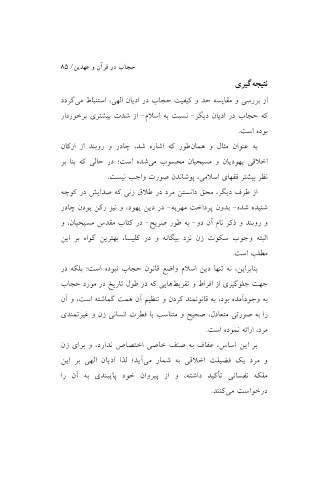 حجاب در قرآن و عهدین/ ۸۵
نتیجه‌گیری
از بررسی و مقایسه حد و کیفیت حجاب در ادیان الهی، استنباط می‌گردد
که حجاب در ادیان دیگر- نسبت به اسلام- از شدت بیشتری برخوردار
بوده است.
به عنوان مثال و همان‌طور که اشاره شد، چادر و روبند از ارکان
اخلاقی یهودیان و مسیحیان محسوب می‌شده است؛ در حالی که بنا بر
نظر بیشتر فقهای اسلامی، پوشاندن صورت واجب نیست.
از طرف دیگر، محق دانستن مرد در طلاق زنی که صدایش در کوچه
شنیده شده- بدون پرداخت مهریه- در دین یهود، و نیز رکن بودن چادر
و روبند و ذکر نام آن دو- به طور صریح- در کتاب مقدس مسیحیان، و
البته وجوب سکوت زن نزد بیگانه و در کلیسا، بهترین گواه بر این
مطلب است.
بنابراین، نه تنها دین اسلام واضع قانون حجاب نبوده است؛ بلکه در
جهت جلوگیری از افراط و تفریط‌هایی که در طول تاریخ در مورد حجاب
به وجودآمده بود، به قانونمند کردن و تنظیم آن همت گماشته است، و آن
را به صورتی متعادل، صحیح و متناسب با فطرت انسانی زن و غیرتمندی
مرد، ارائه نموده است.
بر این اساس، عفاف به صنف خاصی اختصاص ندارد، و برای زن
و مرد یک فضیلت اخلاقی به شمار می‌آید؛ لذا ادیان الهی بر این
ملکه نفسانی تأکید داشته، و از پیروان خود پایبندی به آن را
درخواست می‌کنند.